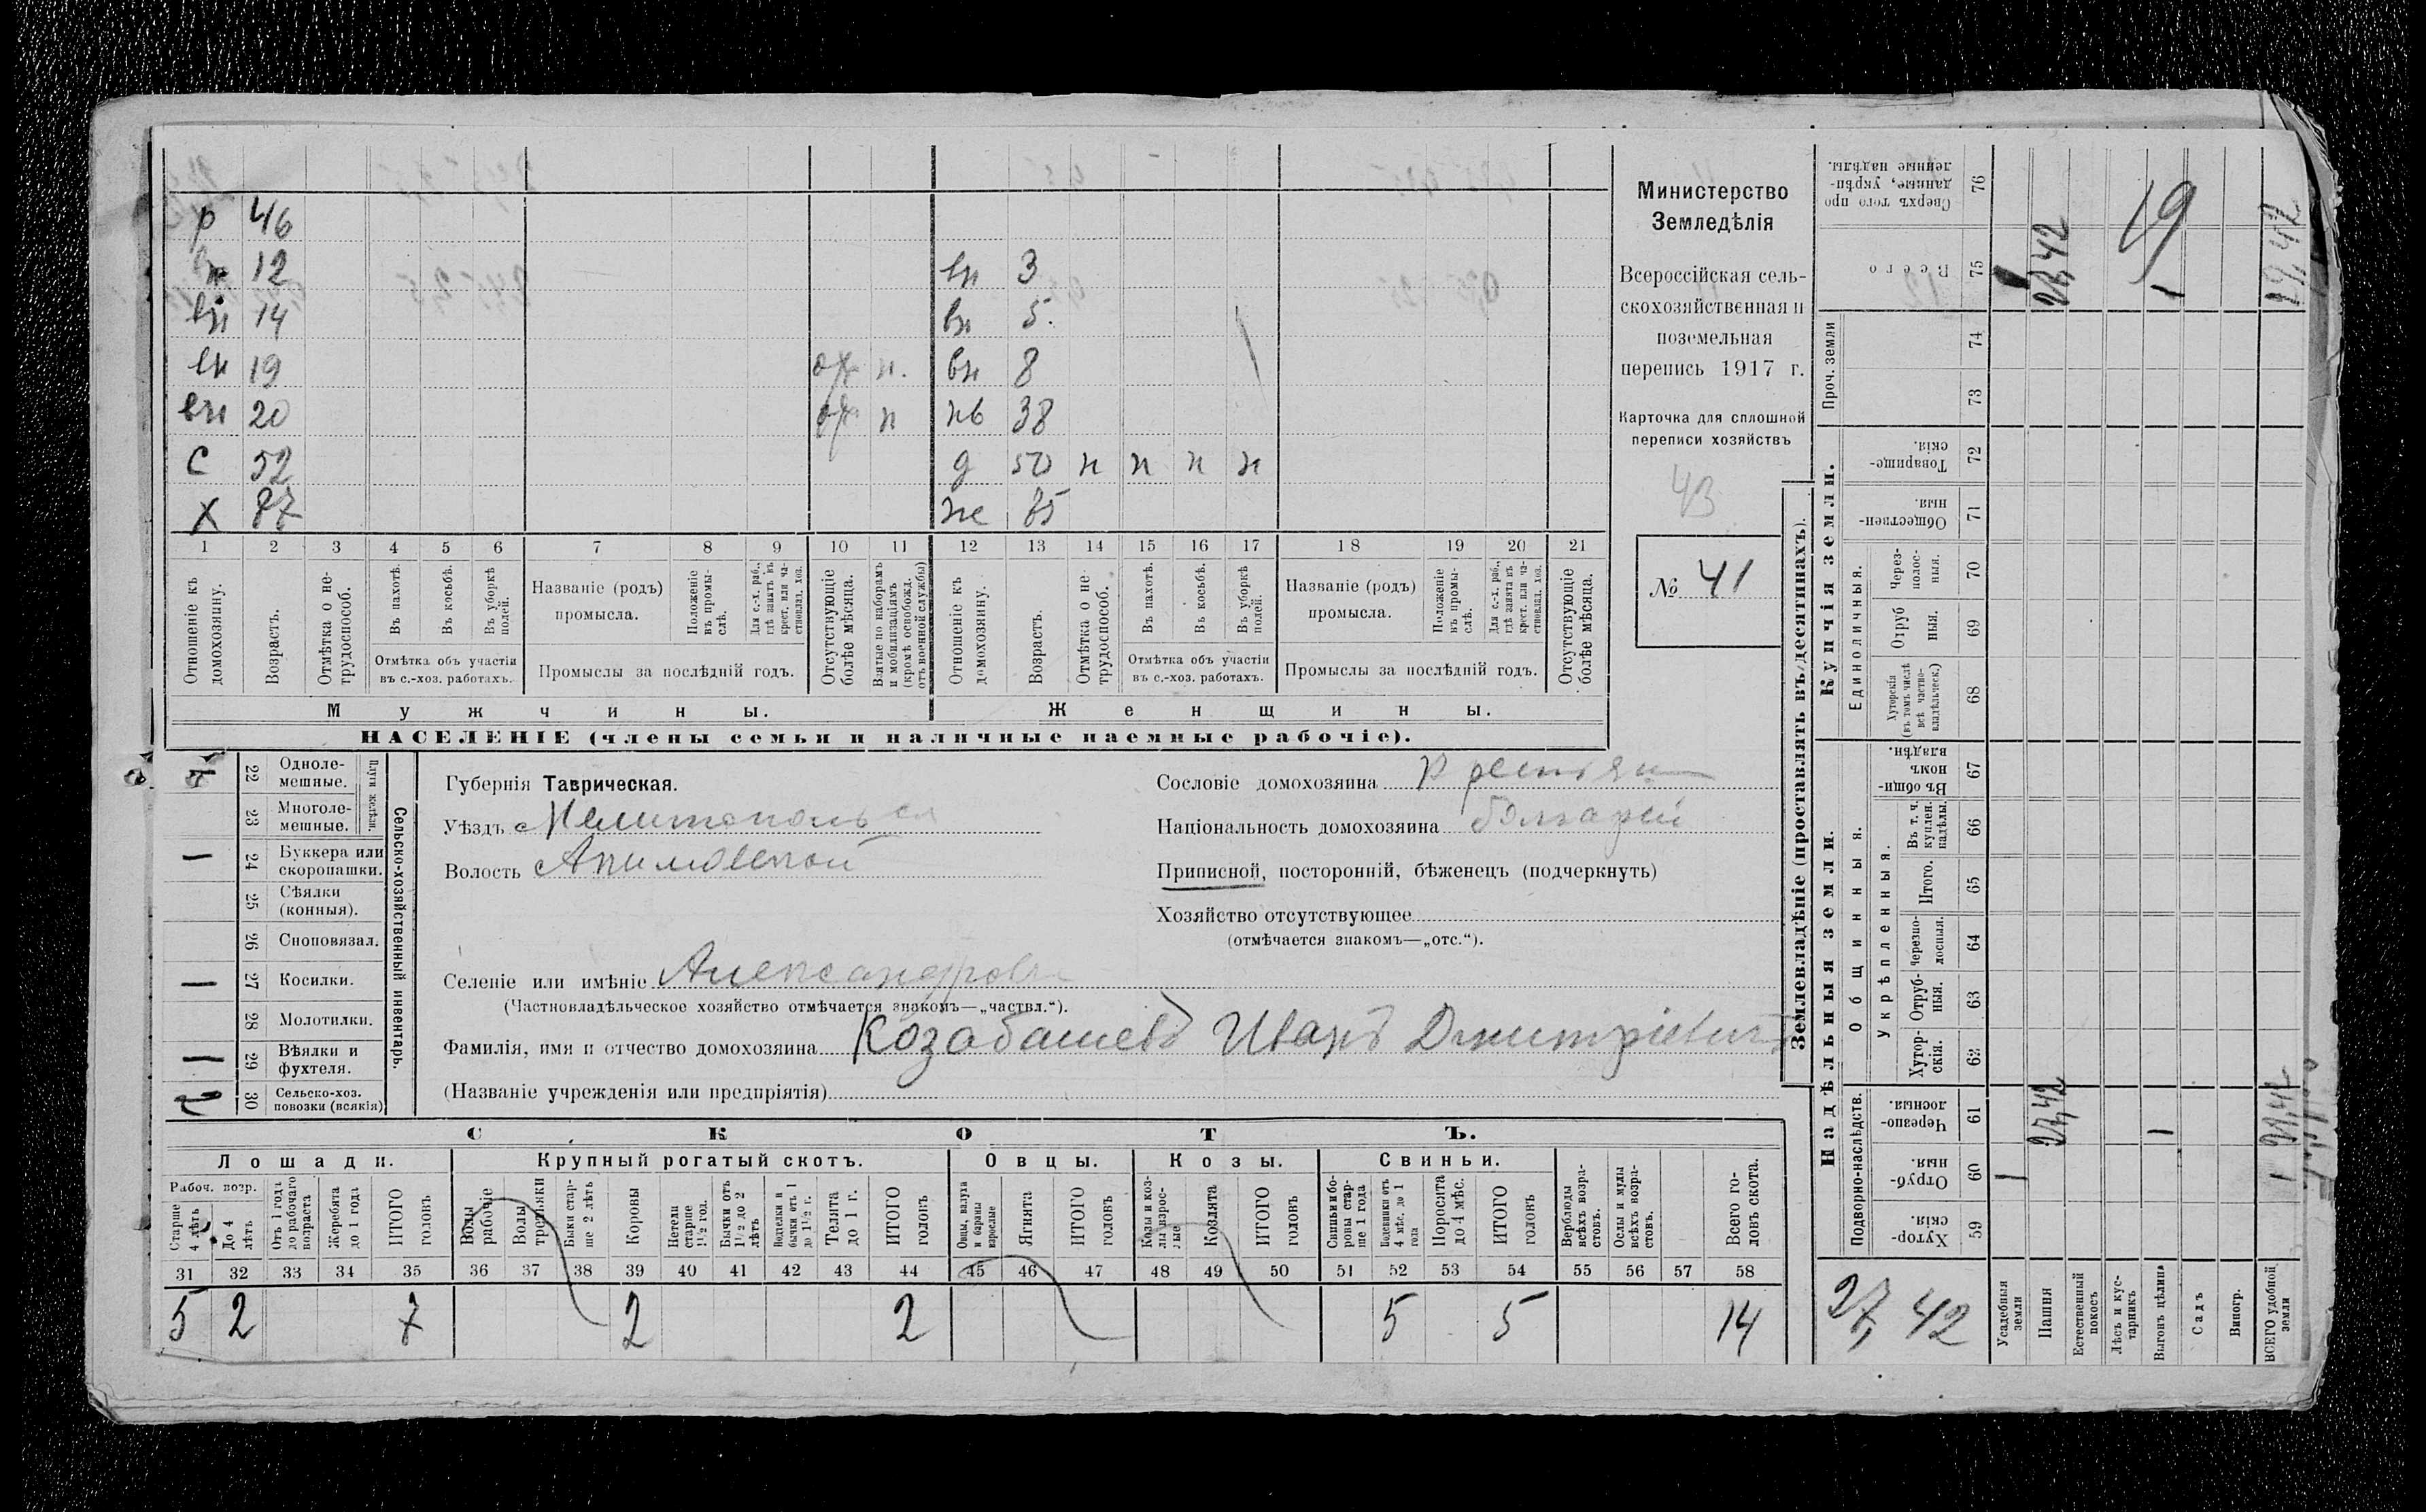 р 46
вн 12 вн 3
вн 14 вн 5.
вн 19 н. вн 8
вн 20 н нв 38
С 52 д 50 н н н н
Х 87 же 85
1 2 3 4 5 6 7 8 9 10 11 12 13 14 15 16 17 18 19 20 21
Отношеніе къ домохозяину.
Возрастъ.
Отмѣтка о нетрудоспособ.
Въ пахотѣ.
Въ косьбѣ.
Въ уборкѣ полей.
Отмѣтка объ участіи
въ с.-хоз. работахъ.
Названіе (родъ)
промысла.
Положеніе въ промыслѣ.
Для с.-х. раб., гдѣ занятъ въ крест. или частновлад. хоз.
Промыслы за послѣдній годъ.
Отсутствующіе болѣе мѣсяца.
Взятые по наборамъ и мобилизаціямъ (кромѣ освобожд. отъ военной службы)
Отношеніе къ домохозяину.
Возрастъ.
Отмѣтка о не трудоспособ.
Въ пахотѣ.
Въ косьбѣ.
Въ уборкѣ полей.
Отмѣтка объ участіи
въ с.-хоз. работахъ.
Названіе (родъ)
промысла.
Положеніе въ промыслѣ.
Для с.-х. раб., гдѣ занята въ крест. или частновлад. хоз.
Промыслы за послѣдній годъ.
Отсутствующіе болѣе мѣсяца.
Мужчины. Женщины.
НАСЕЛЕНІЕ (члены семьи и наличные наемные рабочіе).
Министерство
Земледѣлія
Всероссійская сель-
скохозяйственная и
поземельная
перепись 1917 г.
Карточка для сплошной
переписи хозяйствъ
43
№ 41
22 Одноле-
мешные.
23 Многоле-
мешные.
Плуги желѣзн.
24 Буккера или
скоропашки.
25 Сѣялки
(конныя).
26 Сноповязал.
27 Косилки.
28 Молотилки.
29 Вѣялки и
фухтеля.
30 Сельско-хоз.
повозки (всякія)
Сельско-хозяйственный инвентарь.
Губернія Таврическая.
Уѣздъ Мелитопольск
Волость Акимовской
Селеніе или имѣніе Александровк
(Частновладѣльческое хозяйство отмѣчается знакомъ—„частвл.“).
Фамилія, имя и отчество домохозяина Козабашевъ Иванъ Дмитріевичъ
(Названіе учрежденія или предпріятія)
Сословіе домохозяина крестьян
Національность домохозяина болгарей
Приписной, посторонній, бѣженецъ (подчеркнуть)
Хозяйство отсутствующее
(отмѣчается знакомъ—„отс.“).
СКОТЪ.
Лошади. Крупный рогатый скотъ. Овцы. Козы. Свиньи.
Рабоч. возр.
Старше 4 лѣтъ
До 4 лѣтъ
Отъ 1 года до рабочаго возраста
Жеребята до 1 года
ИТОГО головъ
Волы рабочіе
Волы третьяки
Быки старше 2 лѣтъ
Коровы
Нетели старше 1½ год.
Бычки отъ 1½ до 2 лѣтъ
Телки и бычки отъ 1 до 1½ г.
Телята до 1 г.
ИТОГО головъ
Овцы, валуха и бараны взрослые
Ягнята
ИТОГО головъ
Козы и козлы взрослые
Козлята
ИТОГО головъ
Свиньи и боровы старше 1 года
Подсвинки отъ 4 мѣс. до 1 года
Поросята до 4 мѣс.
ИТОГО головъ
Верблюды всѣхъ возрастовъ.
Ослы и мулы всѣхъ возрастовъ.
Всего головъ скота.
31 32 33 34 35 36 37 38 39 40 41 42 43 44 45 46 47 48 49 50 51 52 53 54 55 56 57 58
5 2 7 2 2 5 5 14
Землевладѣніе (проставлять въ десятинахъ).
Сверхъ того проданные, укрѣпленные надѣлы. 76
Всего 75
Проч. земли
74
73
Купчія земли.
Товарищескія. 72
Общественныя. 71
Единоличныя.
Черезполосныя. 70
Отрубныя. 69
Хуторскія (въ томъ числѣ всѣ частновладѣльческ.) 68
Надѣльныя земли.
Общинныя.
Въ общинномъ владѣн. 67
Укрѣпленныя.
Въ т. ч. куплен. надѣлы. 66
Итого. 65
Черезполосныя. 64
Отрубныя. 63
Хуторскія. 62
Подворно-наслѣдств.
Черезполосныя. 61
Отрубныя. 60
Хуторскія. 59
19
27,42
Усадебныя земли
Пашня
Естественный покосъ
Лѣсъ и кустарникъ
Выгонъ цѣлина
Садъ
Виногр.
ВСЕГО удобной земли